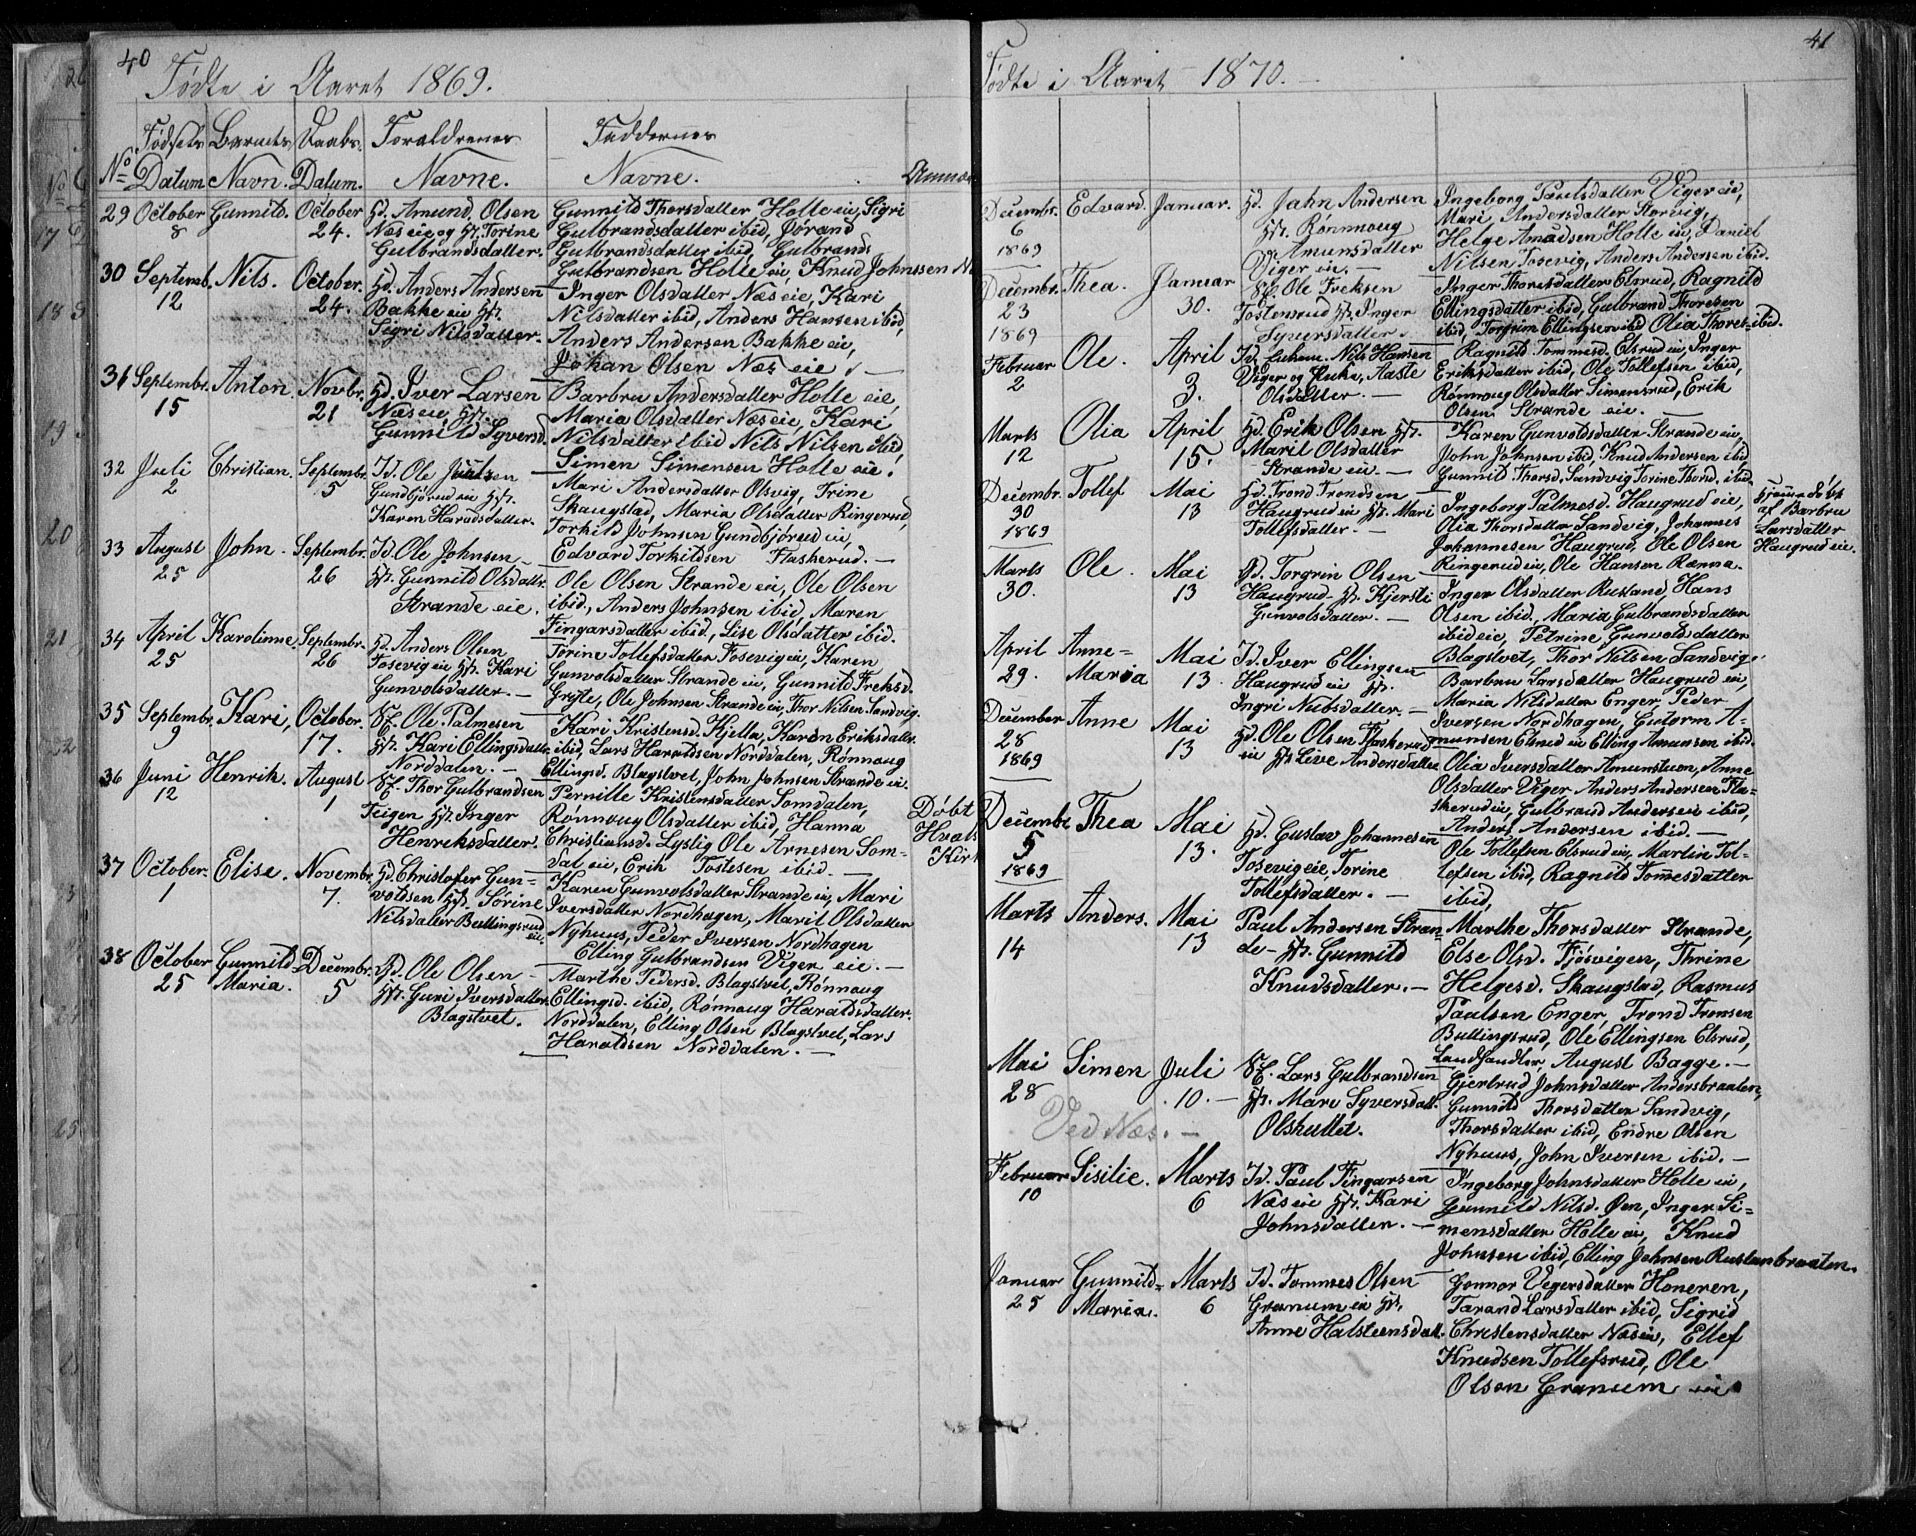 40
Fødte i Aaret 1869.
No Fødsels Datum Barnets Navn. Daabs. Datum. Forældrenes Navne. Faddernes Navne.
29 October 8 Gunnild. October 24. Gd. Amund Olsen
Næs eie og Hst. Torine
Gulbrandsdatter.
Gunnild Thorsdatter Holte eie, Sigri
Gulbrandsdatter ibid, Jørand
Gulbrandsdatter ibid, Gulbrand
Gulbrandsen Holte eie, Knud Johnssen
30 Septemb. 12 Nils. October. 24. Gd. Anders Andersen
Bakke eie Hst.
Sigri Nilsdatter.
Inger Olsdatter Næs eie, Kari
Nilsdatter ibid, Anders Hansen ibid,
Anders Andersen Bakke eie,
Johan Olsen Næs eie
31 Septembr. 15 Anton. Novbr. 21 Gd. Iver Larsen
Næs eie Hst.
Gunnild Syversd.
Barbru Andersdatter Holte eie
Maria Olsdatter Næs eie, Kari
Nilsdatter ibid Nils Nilsen ibid,
Simen Simensen Holte eie.
32 Juli 2 Christian. Septembr. 5 Id. Ole
Gundbjørud eie Hst.
Karen Haruldsdatter.
Mari Andersdatter Olsvig, Trine
Skaugstad, Maria Olsdatter Ringerud,
Torkild Johnsen Gundbjørud eie,
Edvard Torkildsen Flaskerud.
33 August 25 John. Septembr. 26 Id. Ole Johnsen
Hst. Gunnild Olsdatter
Strande eie.
Ole Olsen Strande eie, Ole Olsen
ibid., Anders Johnsen ibid, Maren
Fingarsdatter ibid., Lise Olsdatter ibid.
34 April 25 Karolinne Septembr. 26 Gd. Anders Olsen
Tosevig eie Hst. Kari
Gunvolsdatter.
Torine Tollefsdatter Fosevig eie, Karen
Gunvolsdatter Strande eie, Gunnild Freksd.
Ole Johnsen Strande eie, Thor Nilsen Sandvig.
35 Septembr. 9 Kari, October. 17. Ole Palmesen
Hst. Kari Ellingsdatter
Norddalen.
Kari Kristensd. Hjella, Karen Eriksdatter.
ibid, Lars Haraldsen Norddalen, Rønnaug
Ellingsd. Blagstvet, John Johnsen Strande eie.
36 Juni 12 Henrik. August 1 Thor Gulbrandsen
Teigen Hst. Inger
Henriksdatter.
Pernille Kristensdatter Somdalen,
Rønnoug Olsdatter ibid, Hanna
Christiansd. Lyslig Ole Arnesen Som-
dal eie, Erik Tostesen ibid.
Døbt
Hvals
Kirk
37 October. 1 Elise. Novembr. 7. Gd. Christofer Gun-
voldsen Hst. Sørine
Nilsdatter Bullingsrud
eie.
Karen Gunvolsdatter Strande eie, Mari
Iversdatter Nordhagen, Marit Olsdatter
Nyhuus, Peder Iversen Nordhagen
Elling Gulbrandsen Viger eie.
38 October 25 Gunnild Maria. Decembr. 5 Gd. Ole Olsen
Hst. Guri Iversdatter.
Blagstvet.
Marthe Pedersd. Blagstvet, Rønnaug
Ellingsd. ibid, Rønnaug Haraldsdatter.
Norddalen, Elling Olsen Blagstvet, Lars
Haraldsen Norddalen.
41
Fødte i Aaret 1870.
Decembr. 6 1869 Edvard. Januar. Gd. Jahn Andersen
Hst. Rønnnoug
Amunsdatter
Viger eie.
Ingeborg Paulsdatter Viger eie,
Mari Andersdatter Storvig,
Helge Amudsen Holte eie, Daniel
Nilsen Tosevig, Anders Andersen ibid.
Decembr. 23 1869 Thea. Januar 30. Ole Freksen
Tostensrud Hst. Inger
Syversdatter.
Inger Thoresdatter Elsrud, Ragnild
Ellingsdatter ibid, Gulbrand Thoresen
ibid, Torgrim Ellingsen ibid Olia Thores. ibid.
Februar 2 Ole. April 3. Nils Hansen
Viger og Aaste
Olsdatter.
Ragnild Tommesd. Elsrud eie, Inger
Eriksdatter ibid, Ole Tollefsen ibid,
Rønnoug Olsdatter Simensrud, Erik
Olsen Strande eie.
Marts 12 Olia April 15. Gd. Erik Olsen Hst.
Marit Olsdatter
Strande eie.
Karen Gunvoldsdatter Strande eie,
John Johnsen ibid, Knud Andersen ibid
Gunnild Thorsd. Sandvig Torine Thorsd. ibid.
Decembr. 30 1869 Tollef Mai 13 Gd. Trond Trondsen
Haugrud eie Hst. Mari
Tollefsdatter.
Ingeborg Palmesd. Haugrud eie,
Olia Thorsdatter Sandvig, Johannes
Johannesen Haugrud, Ole Olsen
Ringerud eie, Ole Hansen Rænna.
Hjemmedøbt
af Barbru
Larsdatter
Haugrud eie.
Marts 30. Ole. Mai 13 Gd. Torgrin Olsen
Haugrud Hst. Kjersti
Gunvolsdatter.
Inger Olsdatter Rusland, Hans
Olsen ibid, Maria Gulbrandsdatter
ibid eie, Petrine Gunvoldsdatter
Blagstvet, Thor Nilsen Sandvig.
April 29. Anne= Maria Mai 13. Id. Iver Ellingsen
Haugrud eie Hst.
Ingri Nubsdatter.
Barbru Larsdatter Haugrud eie,
Maria Nilsdatter Enger, Peder
Iversen Nordhagen, Gutorm A-
munsen Elsrud eie Elling Amunsen ibid.
December 28 1869 Anne Mai 13 Gd. Ole Olsen Flaskerud
eie Hst. Live Andersdatter
Olia Iversdatter Amunstuen, Anne
Olsdatter Viger Anders Andersen Fla-
skerud eie, Gulbrand Andersen ibid,
Anders Andersen ibid.
Decembr. 5 1869 Thea Mai 13. Gd. Gustav Johannesen
Tosevig eie, Torine
Tollefsdatter.
Ole Tollefsen Elsrud eie, Martin Tol-
lefsen ibid, Ragnild Tommesdatter
ibid,
Marts 14 Anders. Mai 13 Paul Andersen Stran-
de- Hst. Gunnild
Knudsdatter.
Marthe Thorsdatter Strande,
Else Olsd. Fjøsvigen, Thrine
Helgesd. Skaugstad, Rasmus
Paulsen Enger, Trond Tronsen
Bullingsrud, Ole Ellingsen Elsrud,
Landhandler, August Bagge.
Mai 28 Simen Juli 10. Lars Gulbrandsen
Hst. Mari Syversdatt.
Olshullet.
Gjertrud Johnsdatter Andersbraaten,
Gunnild Thorsdatter Sandvig,
Thorsdatter ibid, Endre Olsen
Nyhuus, John Iversen ibid.
Ved Næs.
Februar 10 Sisilie. Marts 6 Id. Paul Fingarsen
Næs eie Hst. Kari
Johnsdatter.
Ingeborg Johnsdatter Holte eie,
Gunnild Nilsd. Øen, Inger Si=
mensdatter Holte eie, Knud
Johnsen ibid, Elling Johnsen Ruslanbraaten.
Januar 25 Gunnild= Maria. Marts 6 Id. Tommes Olsen
Granum eie Hst.
Anne Halsteensdatt.
Gonnor Vegersdatter Honeren,
Tarand Larsdatter ibid, Sigrid
Christensdatter Næs eie, Ellef
Knudsen Tollefsrud, Ole
Olsen Granum eie